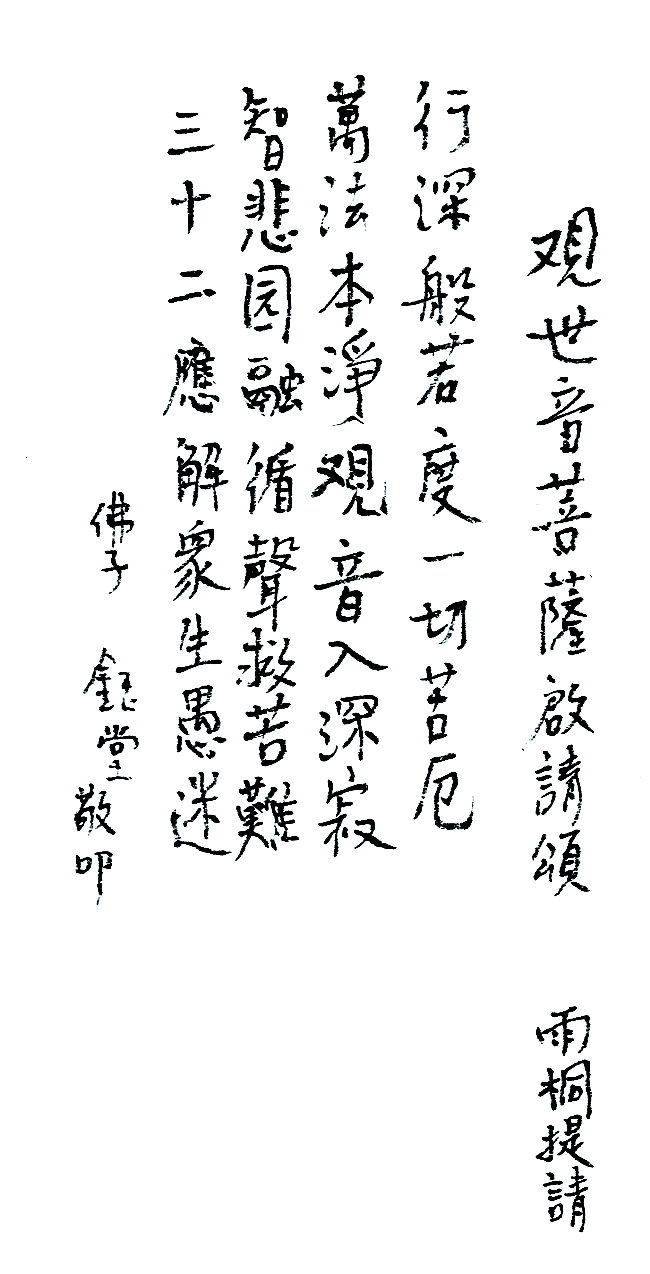 观世音菩薩啟請頌 雨桐提請
行深般若度一切苦厄
萬法本淨觀音入深寂
智悲园融循聲救苦難
三十二應解眾生愚迷
佛子 鈺堂敬叩